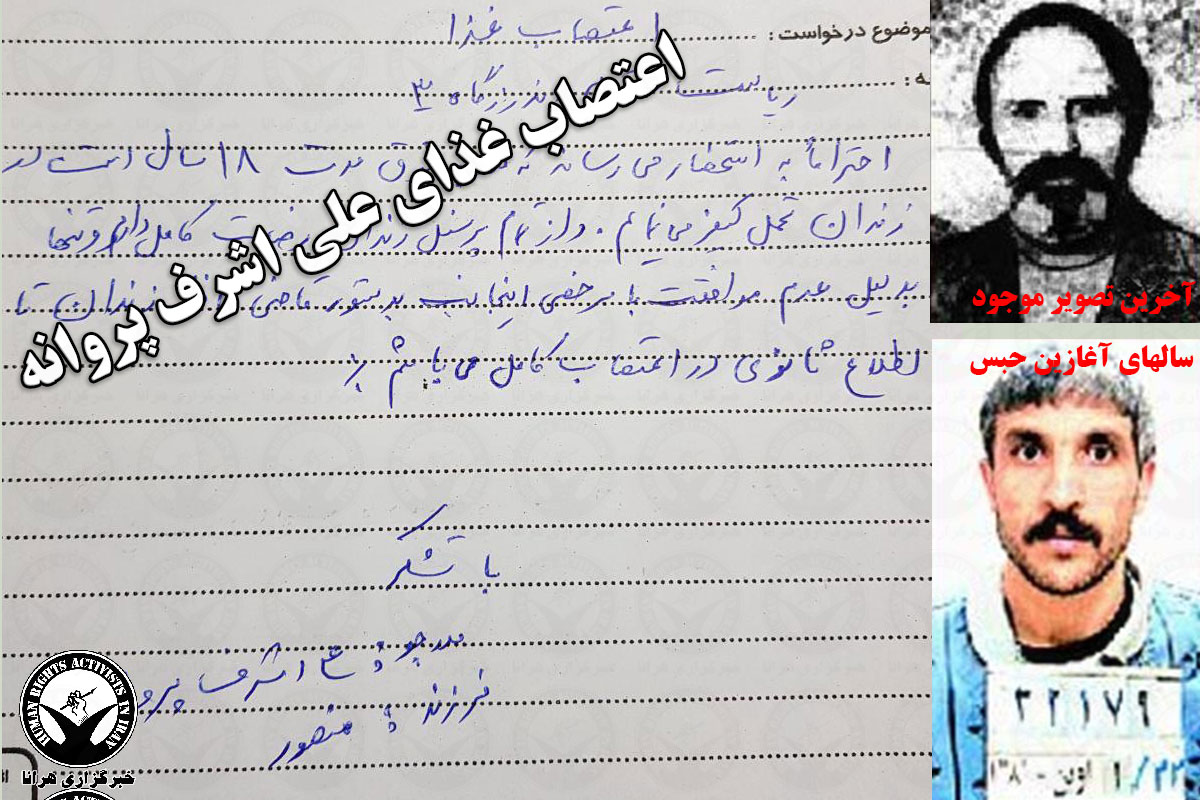 موضوع درخواست: اعتصاب غذا
به: ریاست اندرزگاه ۳
احتراماً به استحضار می رساند که فوق مدت ۱۸ سال است در
زندان تحمل کیفر می نمایم . و از تمام پرسنل زندان رضایت کامل دارم و تنها
بدلیل عدم موافقت با مرخصی اینجانب بدستور قاضی زندان تا
اطلاع ثانوی در اعتصاب کامل می باشم
با تشکر
مددجو : ع اشرف پرو
فرزند : منصور
اعتصاب غذای علی اشرف پروانه
آخرین تصویر موجود
سالهای آغازین حبس
۳۲۱۷۹
اوین
HUMAN RIGHTS ACTIVISTS IN IRAN
خبرگزاری هرانا